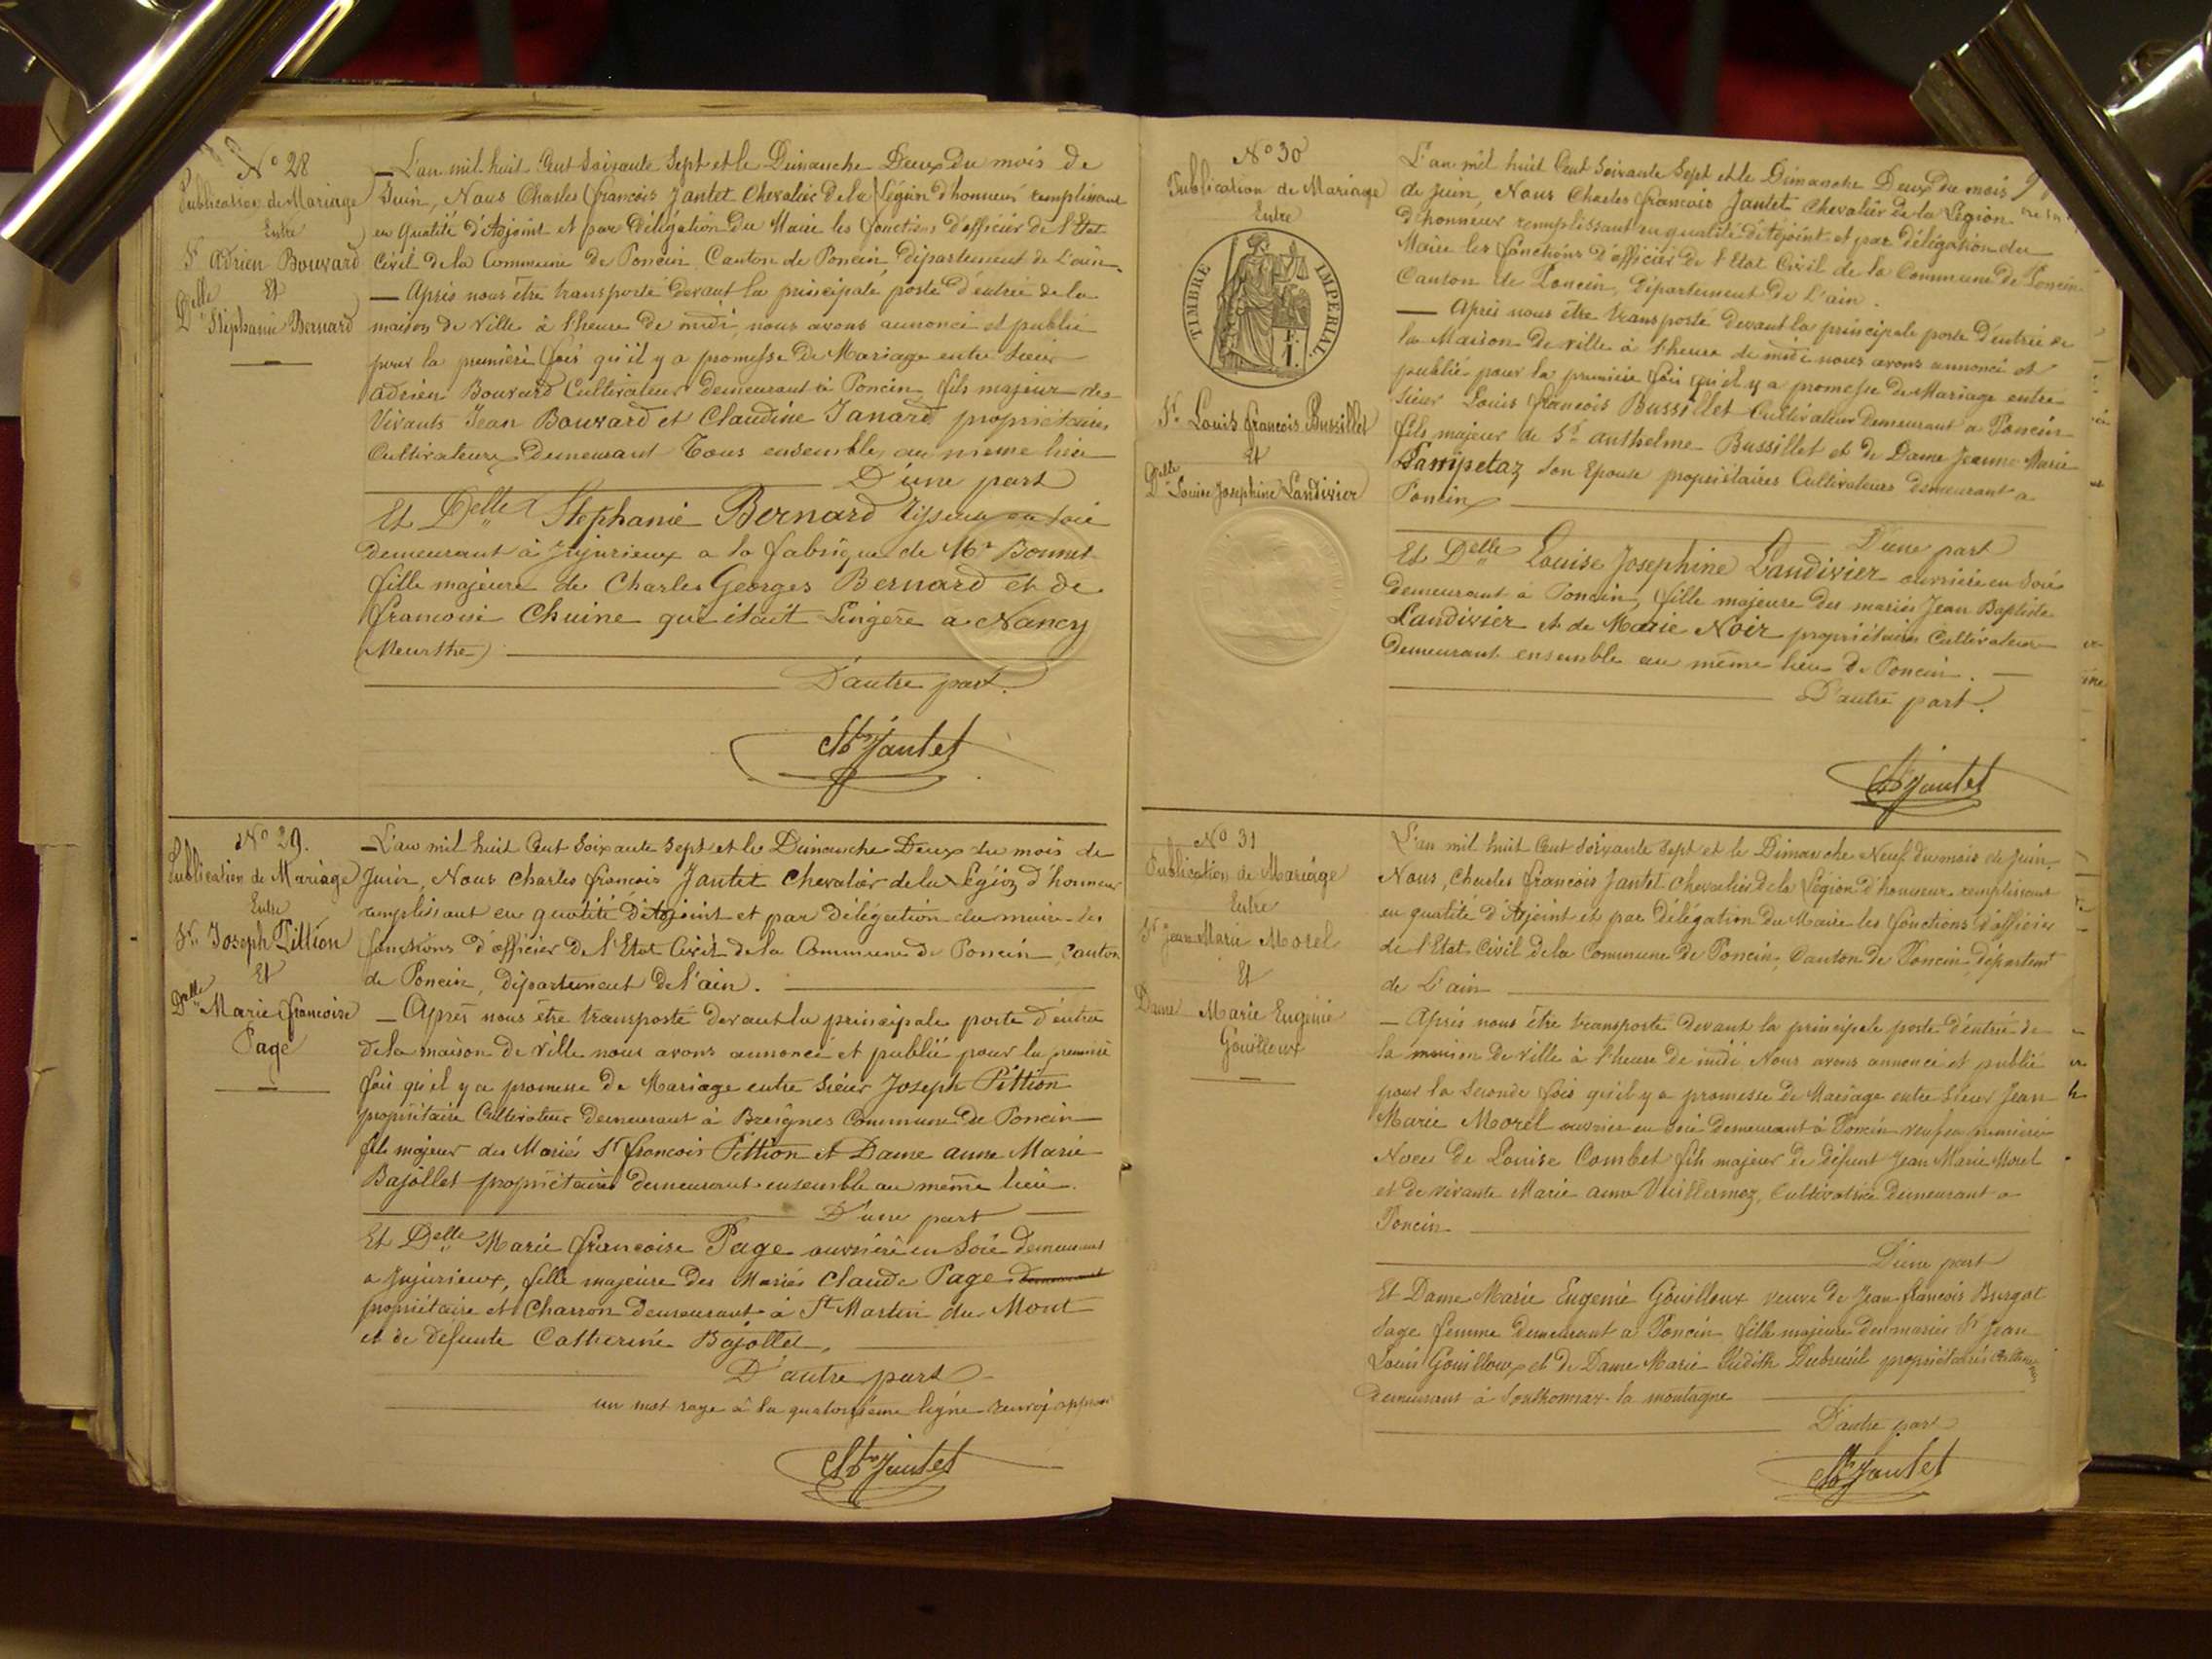 N° 28
Publication de Mariage
Entre
Sr Adrien Bouvard
Et
Delle Stéphanie Bernard
L'an mil huit Cent Soixante Sept et le Dimanche Deux du mois de
Juin, Nous Charles françois Jantet Chevalier de la Légion d'honneur remplissant
en qualité d'Adjoint et par Délégation du Maire les fonctions d'officier de l'Etat
Civil de la Commune de Poncin Canton de Poncin, Département de L'ain.
— Après nous être transporté devant la principale porte d'entrée de la
maison de Ville à l'heure de midi, nous avons annoncé et publié
pour la première fois qu'il y a promesse de Mariage entre Sieur
Adrien Bouvard Cultivateur demeurant à Poncin fils majeur des
Vivants Jean Bouvard et Claudine Janard, propriétaires
Cultivateurs Demeurant Tous ensemble, au meme lieu
D'une part
Et Delle Stephanie Bernard Tisseuse en soie
demeurant à Jujurieux a la fabrique de Mr Bonnet
fille majeure de Charles Georges Bernard et de
francoise Chuine qui était Lingère a Nancy
(Meurthe)
D'autre part.
Ch Jantet
N° 29.
Publication de Mariage
Entre
Sr Joseph Pittion
Et
Delle Marie francoise
Page
L'an mil huit Cent Soixante Sept et le Dimanche Deux du mois de
Juin, Nous Charles francois Jantet Chevalier de la Légion d'honneur
remplissant en qualité d'Adjoint et par délégation du maire les
fonctions d'officier de l'Etat Civil de la Commune de Poncin, Canton
de Poncin, département de l'ain.
— Après nous être transporté devant la principale porte d'entrée
de la maison de Ville nous avons annoncé et publié pour la première
fois qu'il y a promesse de Mariage entre Sieur Joseph Pittion
propriétaire Cultivateur demeurant à Breignes Commune de Poncin
fils majeur des Mariés Sr francois Pittion et Dame anne Marie
Bajollet propriétaires demeurant ensemble au même lieu.
D'une part
Et Delle Marie francoise Page ouvrière en Soie demeurant
a Jujurieux, fille majeure des Mariés Claude Page demeurant
propriétaire et Charron demeurant à St Martin du Mont
et de défunte Catherine Bajollet.
D'autre part
un mot rayé à la quatorzième ligne renvoi approuvé
Ch Jantet
N° 30
Publication de Mariage
Entre
TIMBRE IMPERIAL.
F.
1.
Sr Louis francois Bussillet
Et
Delle Louise Josephine Landivier
L'an mil huit Cent Soixante Sept et le Dimanche Deux du mois
de Juin, Nous Charles francois Jantet Chevalier de la Légion
d'honneur remplissant en qualité d'Adjoint et par délégation du
Maire les fonctions d'officier de l'Etat Civil de la Commune de Poncin
Canton de Poncin, Département de L'ain.
— Après nous être transporté devant la principale porte d'entrée de
la Maison de ville à l'heure de midi nous avons annoncé et
publié pour la première fois qu'il y a promesse de Mariage entre
Sieur Louis francois Bussillet Cultivateur Demeurant a Poncin
fils majeur de Sr anthelme Bussillet et de Dame Jeanne Marie
Pampetaz son Epouse propriétaires Cultivateurs demeurant a
Poncin
D'une part
Et Delle Louise Josephine Landivier ouvrière en Soie
demeurant à Poncin, fille majeure des mariés Jean Baptiste
Landivier et de Marie Noir propriétaires Cultivateurs
demeurant ensemble au même lieu de Poncin.
D'autre part.
Ch Jantet
N° 31
Publication de Mariage
Entre
Sr Jean Marie Morel
Et
Dame Marie Eugénie
Gouilloux
L'an mil huit Cent Soixante Sept et le Dimanche Neuf du mois de Juin.
Nous, Charles francois Jantet Chevalier de la Légion d'honneur remplissant
en qualité d'Adjoint et par Délégation du Maire les fonctions d'officier
de l'Etat Civil de la Commune de Poncin, Canton de Poncin, départemt
de L'ain
— Après nous être transporté devant la principale porte d'entrée de
la maison de ville à l'heure de midi Nous avons annoncé et publié
pour la Seconde fois qu'il y a promesse de Mariage entre Sieur Jean
Marie Morel ouvrier en Soie demeurant à Poncin veuf en première
Noce de Louise Combet fils majeur de défunt Jean Marie Morel
et de vivante Marie anne Vuillermoz, Cultivatrice demeurant a
Poncin
D'une part
Et Dame Marie Eugenie Gouilloux veuve de Jean francois Burgat
Sage femme demeurant a Poncin fille majeure des mariés Sr Jean
Louis Gouilloux et de Dame Marie Judith Dubreuil propriétaires
demeurant à Southonnax la montagne
D'autre part
Ch Jantet